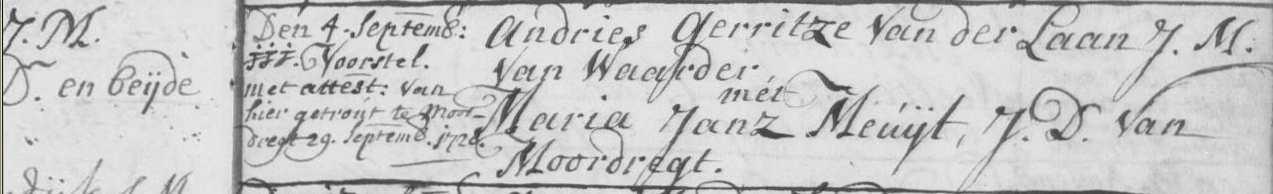 J. M.
D. en beijde
Den 4. Septemb:
III. Voorstel.
met attest: van
hier getrout te Moor-
dregt 29. Septemb. 1728.
Andries Gerritze Van der Laan J. M.
Van Waarder,
met
Maria Janz Meuijt, J. D. Van
Moordregt.